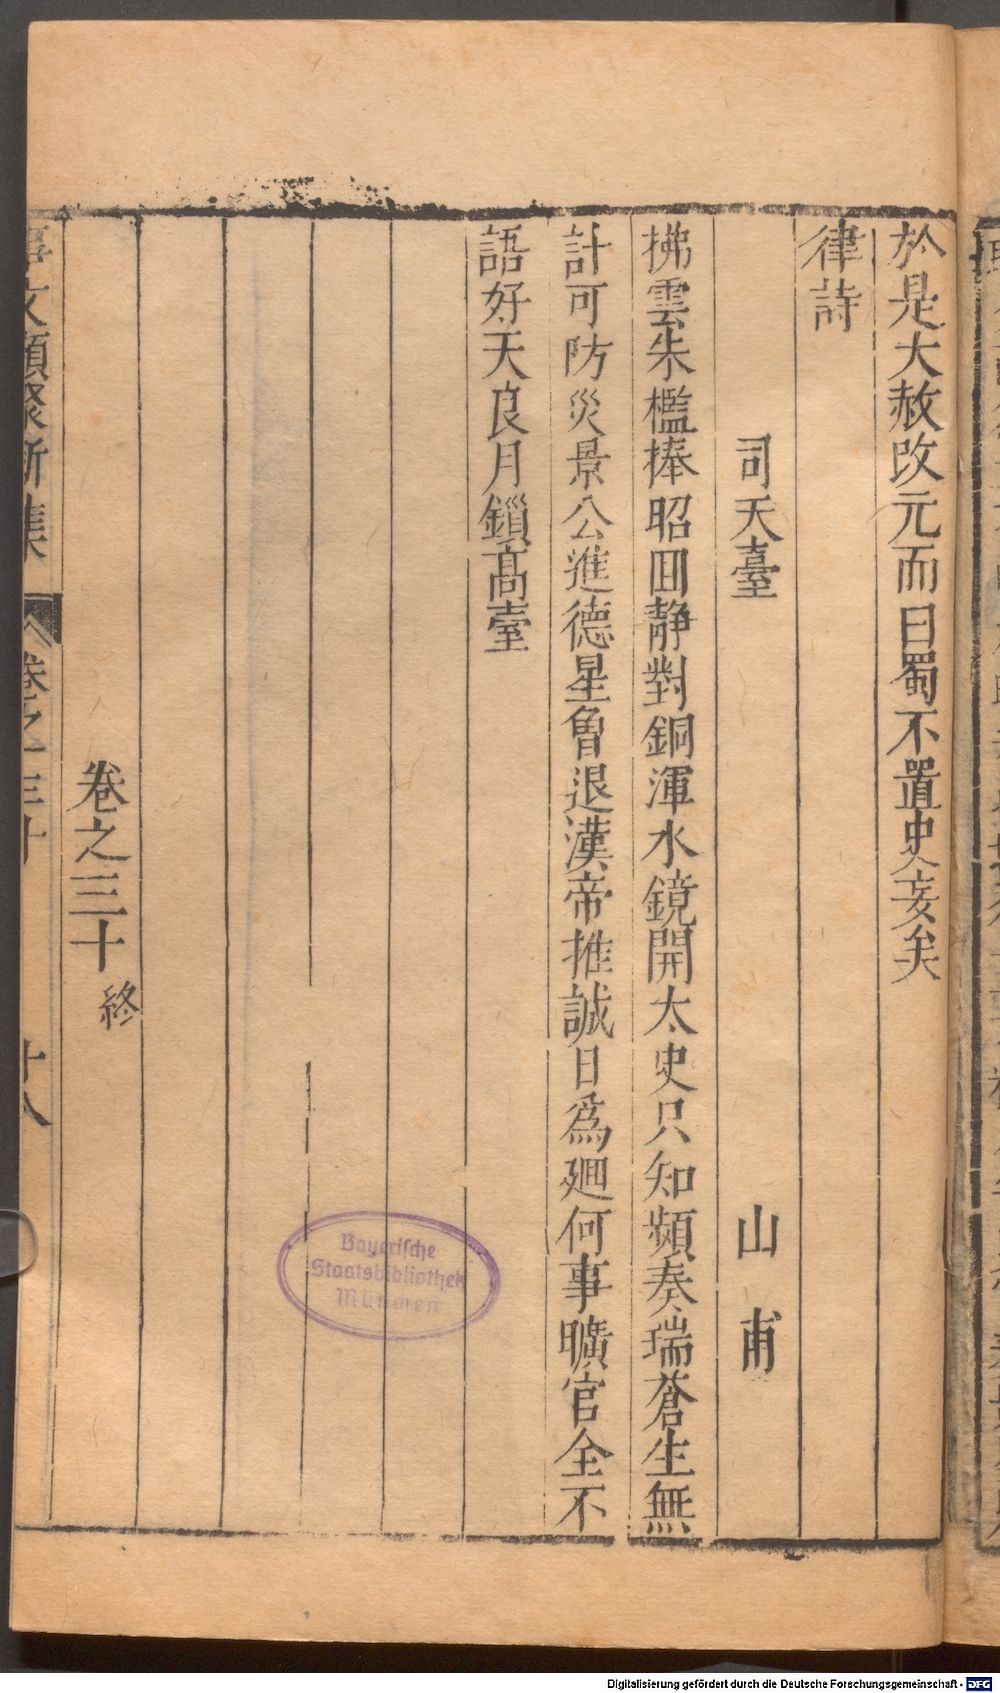 於是大赦改元而曰蜀不置史妄矣
律詩
司天臺 山甫
拂雲朱檻捧昭回静對銅渾水鏡開太史只知頻奏瑞蒼生無
計可防災景公進德星曾退漢帝推誠日爲廻何事曠官全不
語好天良月鎖髙臺
卷之三十 終
事文類聚新集 卷之三十 十八
Bayerische
Staatsbibliothek
München
Digitalisierung gefördert durch die Deutsche Forschungsgemeinschaft - DFG